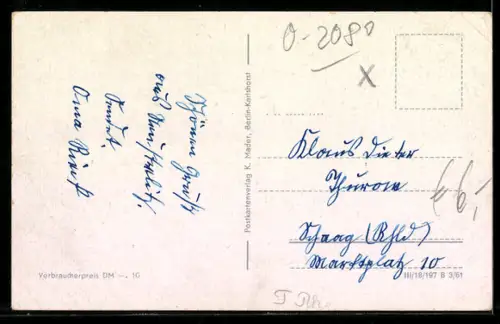 O-2080
X
Schönen Gruß
aus Neustrelitz.
Sendet
Oma
Postkartenverlag K. Mader, Berlin-Karlshorst
Klaus Dieter
Thurow
Schaag (Rhld)
Marktplatz 10
6,-
Verbraucherpreis DM -. 10
III/18/197 B 3/61